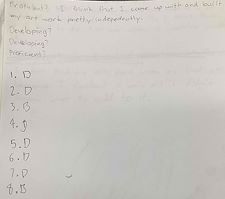 Proficient? I think that I came up with and built
my art work pretty independently.
Developing?
Developing?
Proficient?
1. D
2. D
3. B
4. D
5. D
6. D
7. D
8. B